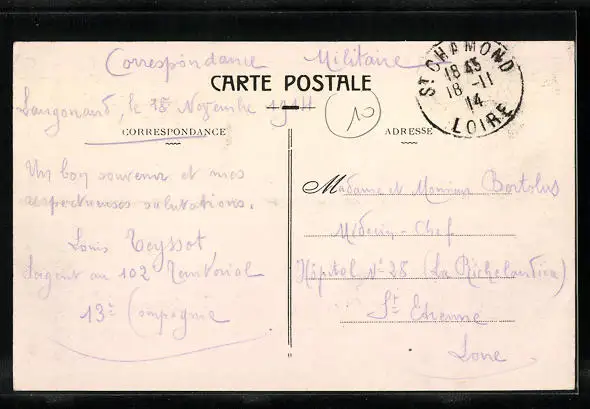 Correspondance Militaire
CARTE POSTALE
le 18 Novembre 1914
10
St CHAMOND
18 45
18 -11
14
LOIRE
CORRESPONDANCE
ADRESSE
Un bon souvenir et mes
respectueuses salutations.
Louis Teyssot
Sergent au 102 Territorial
13e Compagnie
Madame et Monsieur Bortolus
Médecin-Chef
Hôpital N° 28 (La Richelandière)
St Etienne
Loire